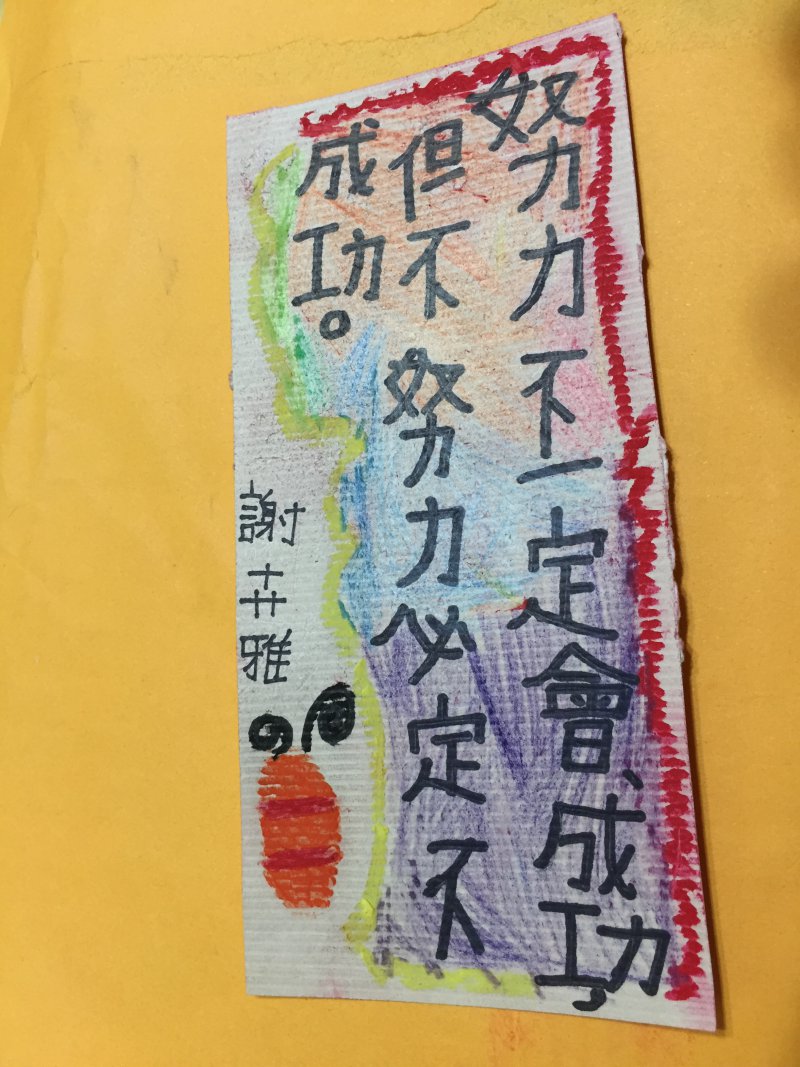 努力不一定會成功，
但不努力必定不
成功。
謝卉雅